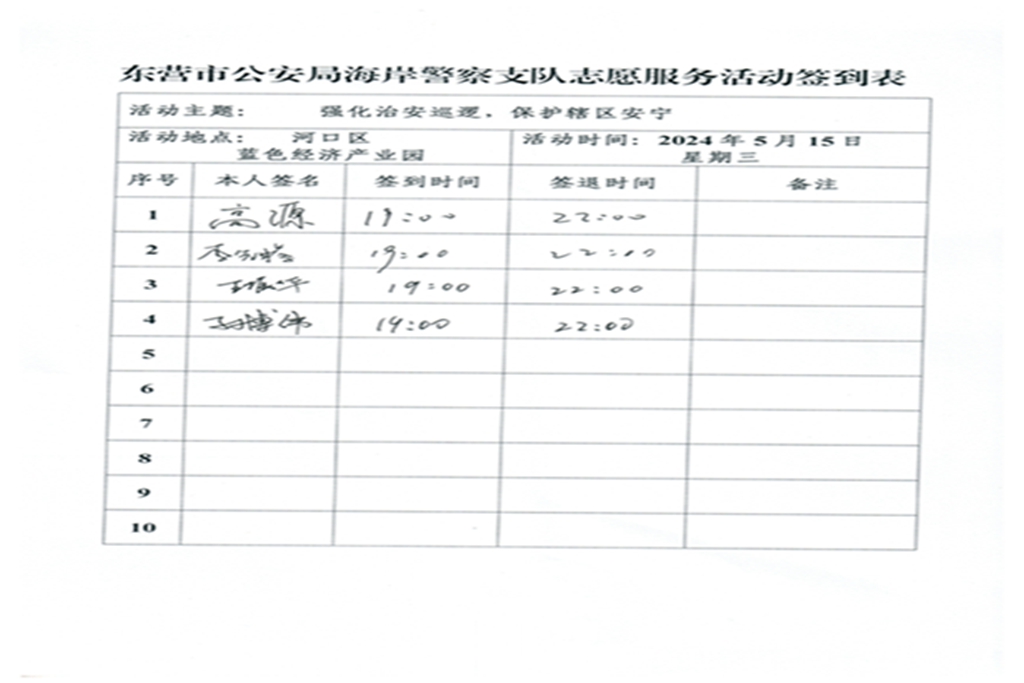 东营市公安局海岸警察支队志愿服务活动签到表
活动主题： 强化治安巡逻，保护辖区安宁
活动地点： 河口区
蓝色经济产业园
活动时间： 2024 年 5 月 15 日
星期三
序号 本人签名 签到时间 签退时间 备注
1 高源 19:00 22:00
2 19:00 22:00
3 19:00 22:00
4 孙博伟 19:00 22:00
5
6
7
8
9
10